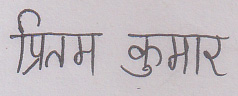 प्रितम कुमार